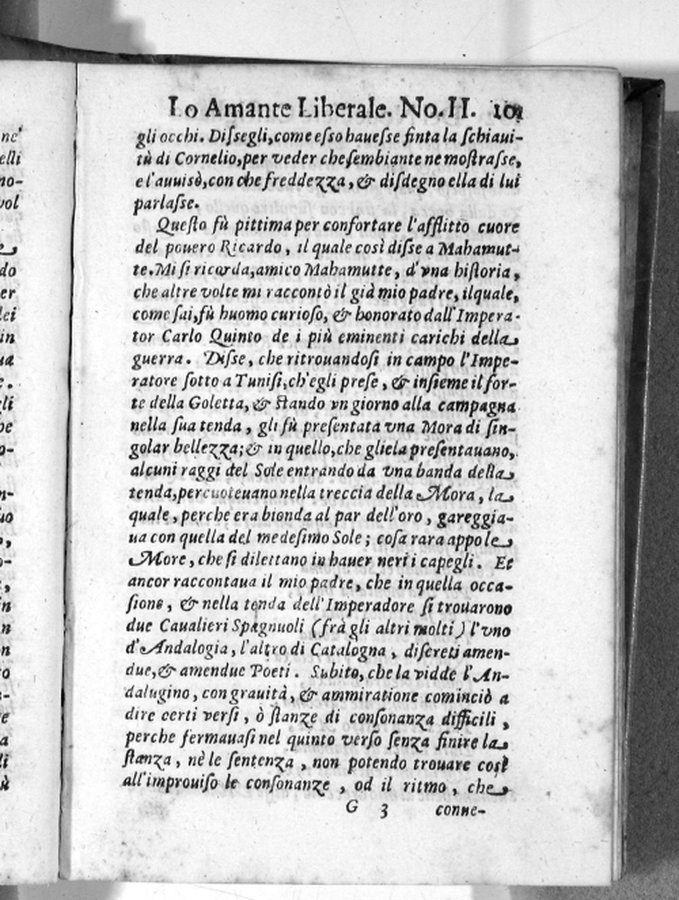 Lo Amante Liberale. No. II. 101
gli occhi. Dissegli, come esso hauesse finta la schiaui-
tù di Cornelio, per veder che sembiante ne mostrasse,
e l'auuisò, con che freddezza, & disdegno ella di lui
parlasse.
Questo fù pittima per confortare l'afflitto cuore
del pouero Ricardo, il quale così disse a Mahamut-
te. Mi si ricorda, amico Mahamutte, d'vna historia,
che altre volte mi raccontò il già mio padre, ilquale,
come sai, fù huomo curioso, & honorato dall'Impera-
tor Carlo Quinto de i più eminenti carichi della
guerra. Disse, che ritrouandosi in campo l'Impe-
ratore sotto a Tunisi, ch'egli prese, & insieme il for-
te della Goletta, & stando vn giorno alla campagna
nella sua tenda, gli fù presentata vna Mora di sin-
golar bellezza; & in quello, che gliela presentauano,
alcuni raggi del Sole entrando da vna banda della
tenda, percuoteuano nella treccia della Mora, la
quale, perche era bionda al par dell'oro, gareggia-
ua con quella del medesimo Sole; cosa rara appo le
More, che si dilettano in hauer neri i capegli. Et
ancor raccontaua il mio padre, che in quella occa-
sione, & nella tenda dell'Imperadore si trouarono
due Caualieri Spagnuoli (frà gli altri molti) l'vno
d'Andalogia, l'altro di Catalogna, discreti amen-
due, & amendue Poeti. Subito, che la vidde l'An-
dalugino, con grauità, & ammiratione cominciò a
dire certi versi, ò stanze di consonanza difficili,
perche fermauasi nel quinto verso senza finire la
stanza, nè le sentenza, non potendo trouare così
all'improuiso le consonanze, od il ritmo, che
G 3 conne-